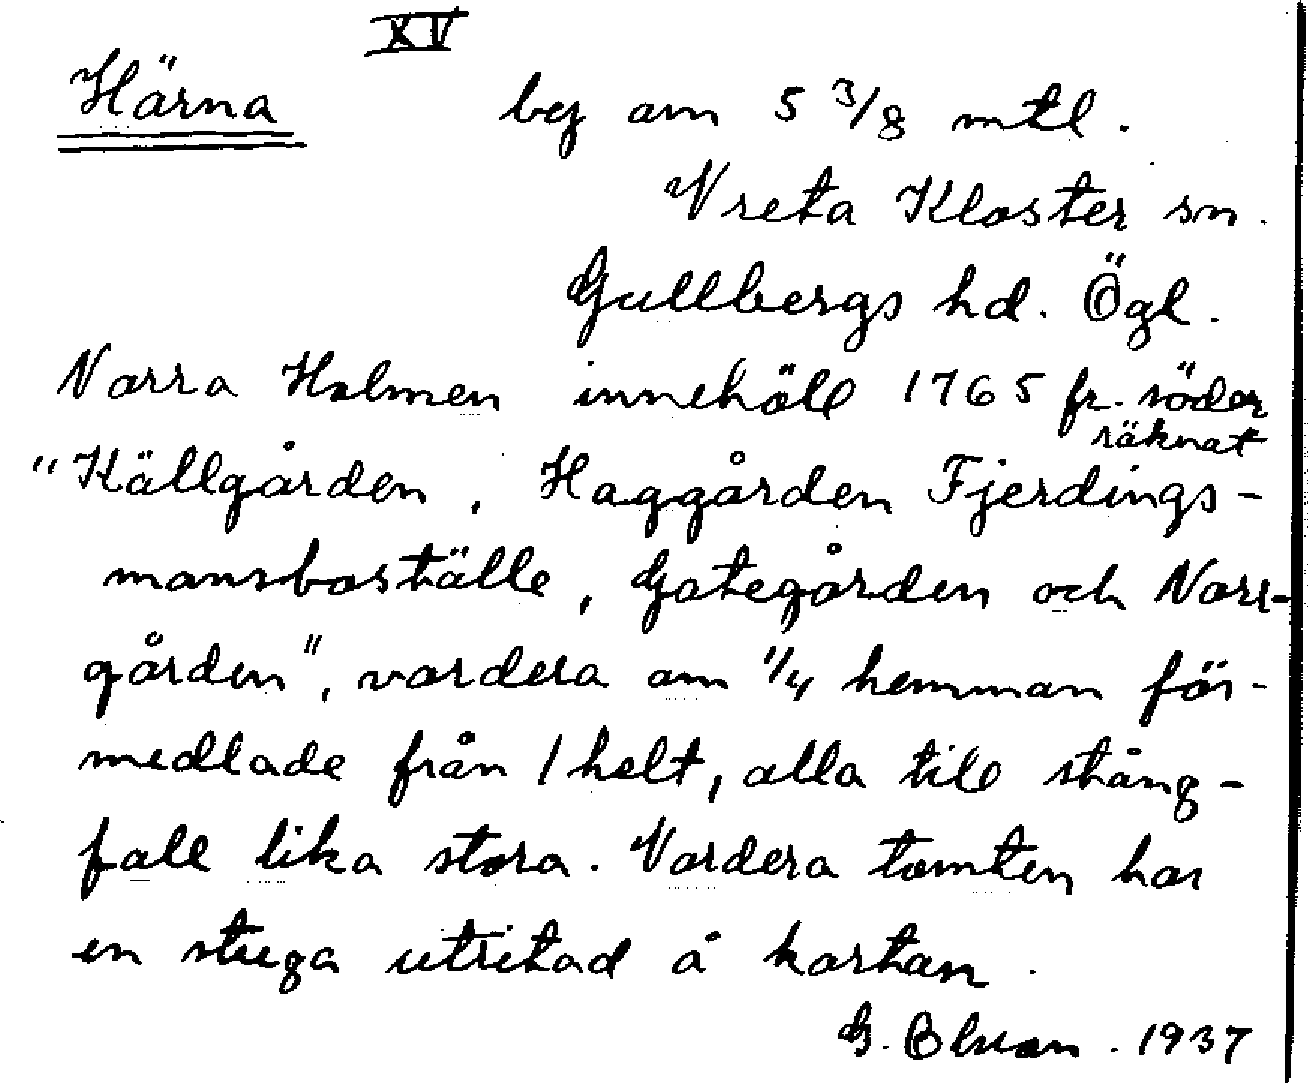 XV
Härna by om 5 3/8 mtl.
Vreta Kloster sn.
Gullbergs hd. Ögl.
Norra Holmen innehöll 1765 fr. söder
räknat
"Källgården, Haggården Fjerdings-
mansboställe, Gategården och Norr-
gården", vardera om 1/4 hemman för-
medlade från 1 helt, alla till stång-
fall lika stora. Vardera tomten har
en stuga utritad å kartan.
G. Olsson. 1937